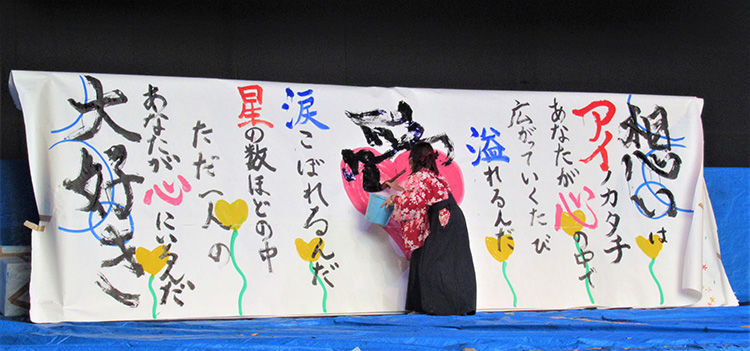 想いは
アイノカタチ
あなたが心の中で
広がっていくたび
溢れるんだ
涙こぼれるんだ
星の数ほどの中
ただ一人の
あなたが心にいるんだ
大好き